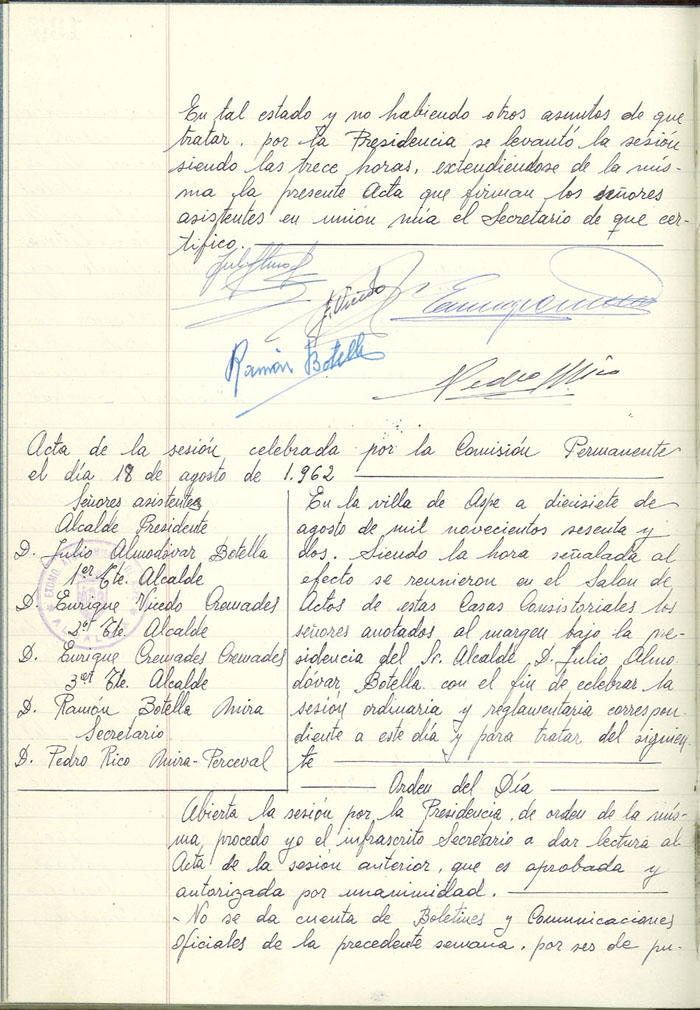 En tal estado y no habiendo otros asuntos de que
tratar, por la Presidencia se levantó la sesión
siendo las trece horas, extendiendose de la mis-
ma la presente Acta que firman los señores
asistentes en unión mía el Secretario de que cer-
tifico.
E. Vicedo
Ramón Botella
Pedro Rico
Acta de la sesión celebrada por la Comisión Permanente
el día 18 de agosto de 1.962
Señores asistentes
Alcalde Presidente
D. Julio Almodóvar Botella
1er Tte. Alcalde
D. Enrique Vicedo Cremades
2º Tte. Alcalde
D. Enrique Cremades Cremades
3er Tte. Alcalde
D. Ramón Botella Mira
Secretario
D. Pedro Rico Mira-Perceval
En la villa de Aspe a diecisiete de
agosto de mil novecientos sesenta y
dos. Siendo la hora señalada al
efecto se reunieron en el Salon de
Actos de estas Casas Consistoriales los
señores anotados al margen bajo la pre-
sidencia del Sr. Alcalde D. Julio Almo-
dóvar Botella con el fin de celebrar la
sesión ordinaria y reglamentaria correspon-
diente a este día y para tratar del siguien-
te
Orden del Día
Abierta la sesión por la Presidencia, de orden de la mis-
ma, procedo yo el infrascrito Secretario a dar lectura al
Acta de la sesión anterior, que es aprobada y
autorizada por unanimidad.
- No se da cuenta de Boletines y Comunicaciones
Oficiales de la precedente semana, por ser de pu-